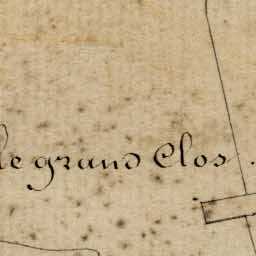 le grand Clos.